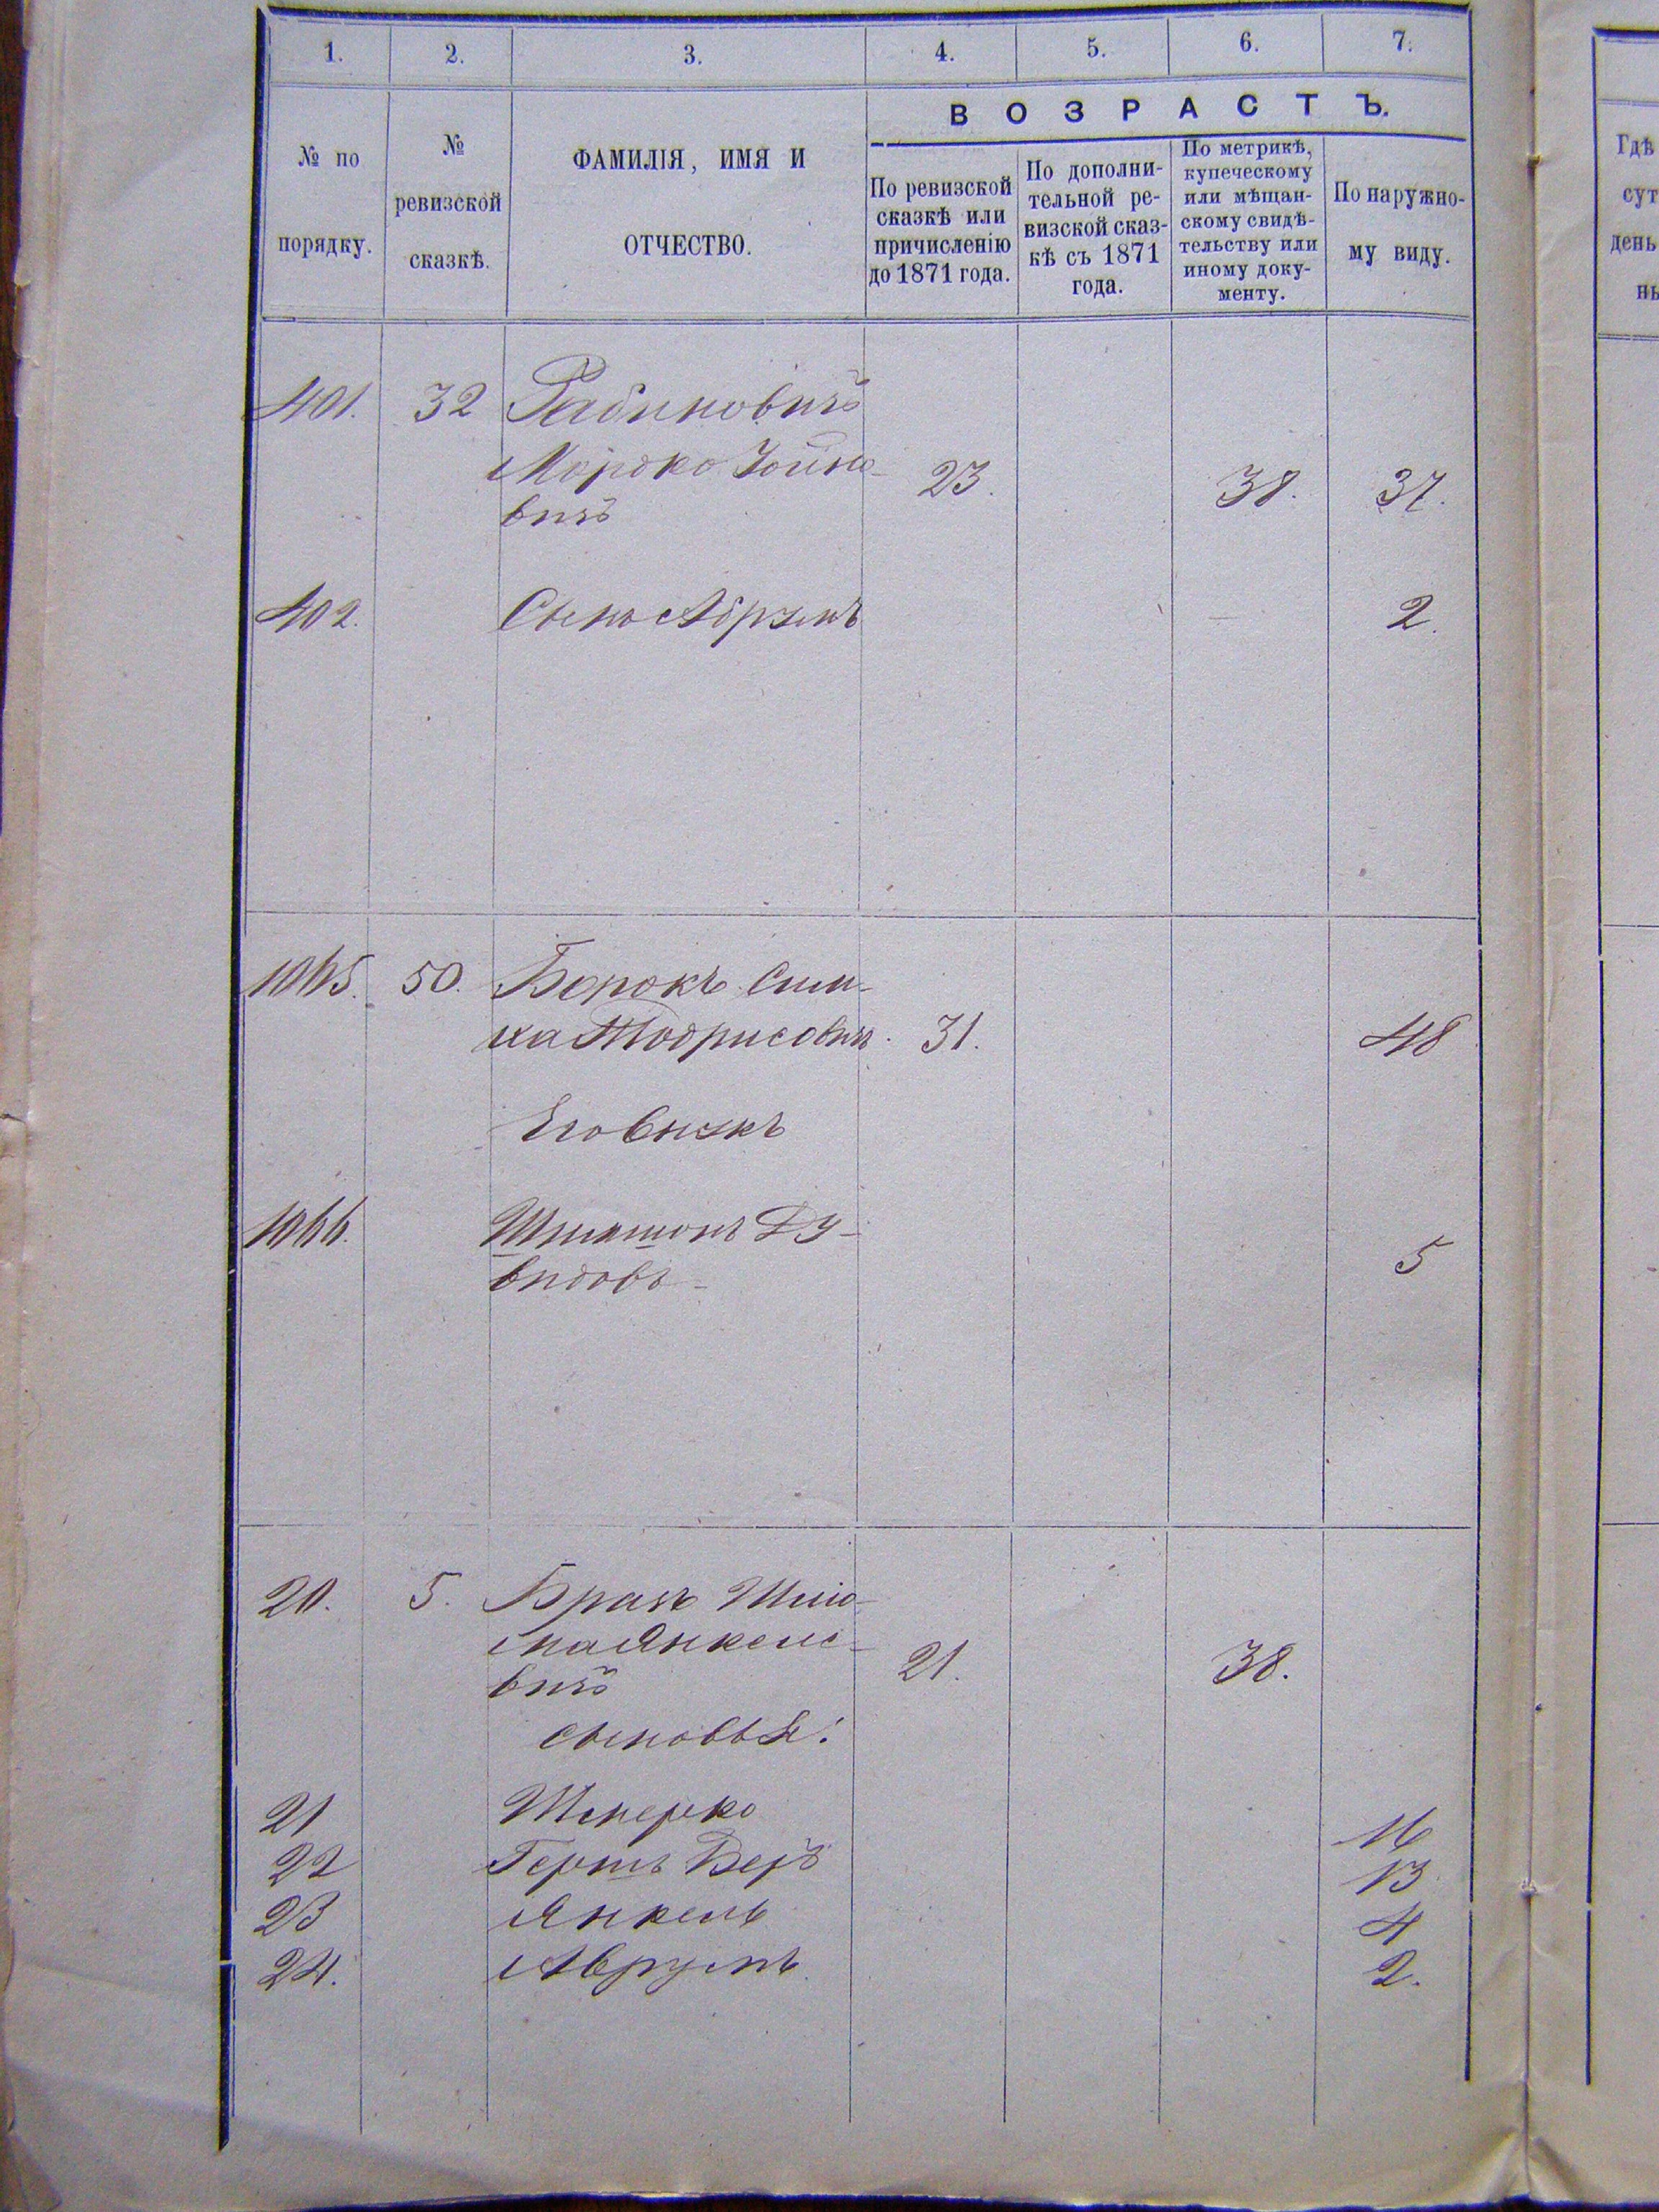 1.
2.
3.
4.
5.
6.
7.
№ по
порядку.
№
ревизской
сказкѣ.
ФАМИЛІЯ, ИМЯ И
ОТЧЕСТВО.
ВОЗРАСТЪ.
По ревизской
сказкѣ или
причисленію
до 1871 года.
По дополни-
тельной ре-
визской сказ-
кѣ съ 1871
года.
По метрикѣ,
купеческому
или мѣщан-
скому свидѣ-
тельству или
иному доку-
менту.
По наружно-
му виду.
Гдѣ
сут
день
ны
401. 32 Рабиновичъ
Мордко 23. 38. 37.
вичъ
402. Сынъ Абрумъ 2.
1065. 50. Борокъ Сим-
ха Тодрисовичъ. 31. 48
Его внукъ
1066. Шимшонъ Ду-
видовъ 5
20. 5. Шлио-
ма Янкеле- 21. 38.
вичъ
сыновья:
21 Шмерко 16
22 Гершъ Беръ 13
23 Янкель 4
24. Аврумъ 2.